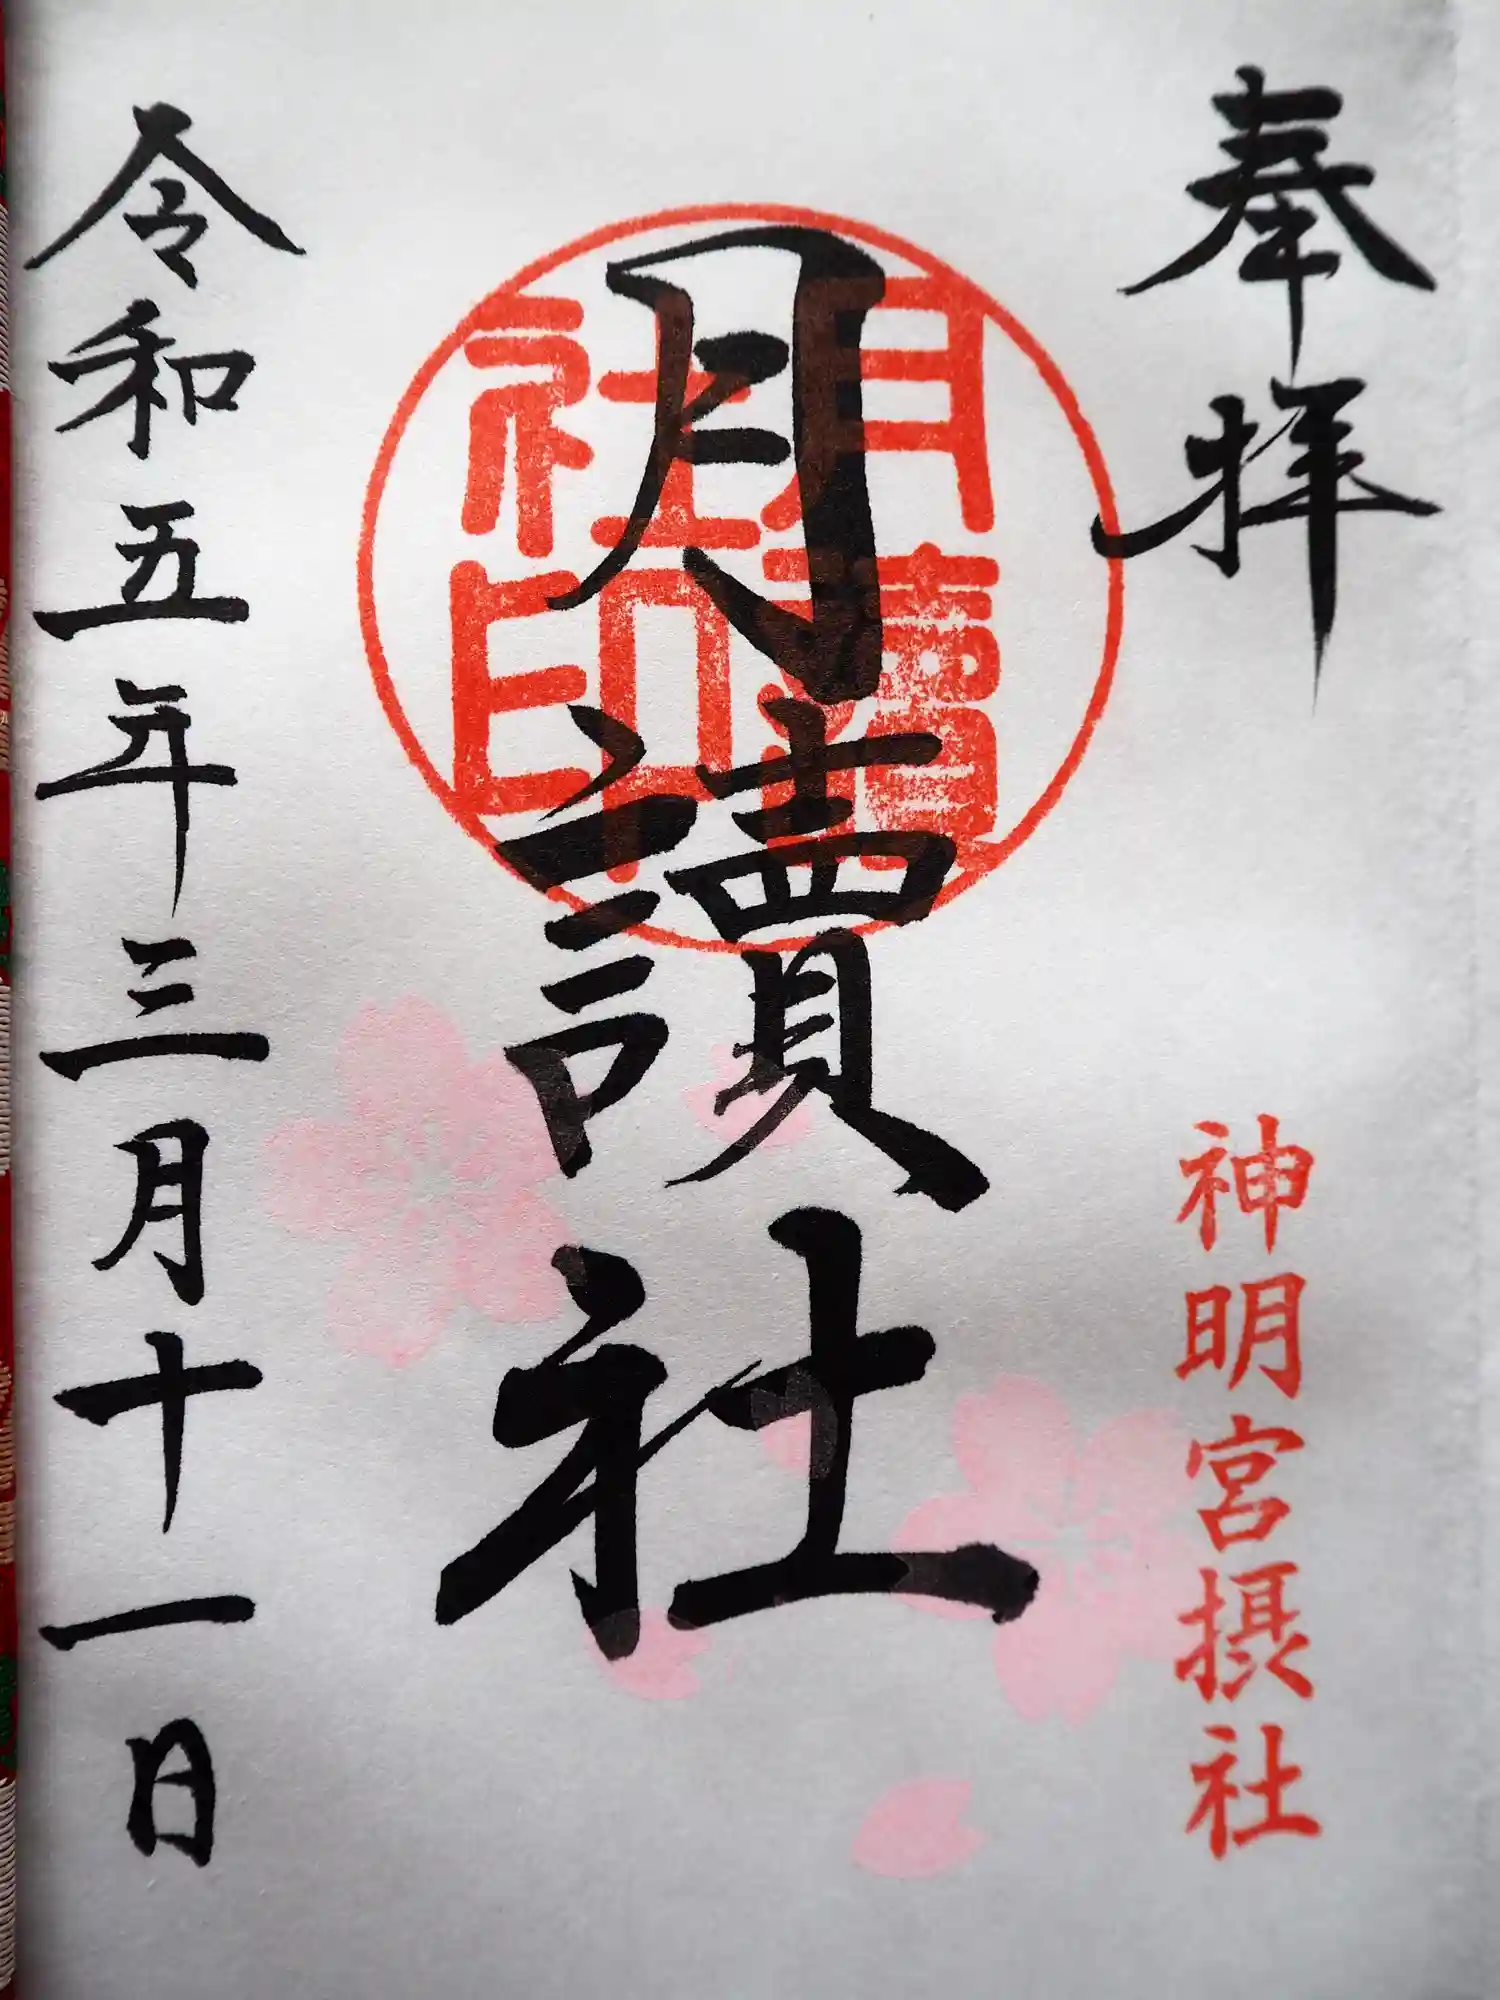 奉拝
神明宮摂社
月讀社
月讀社印
令和五年三月十一日